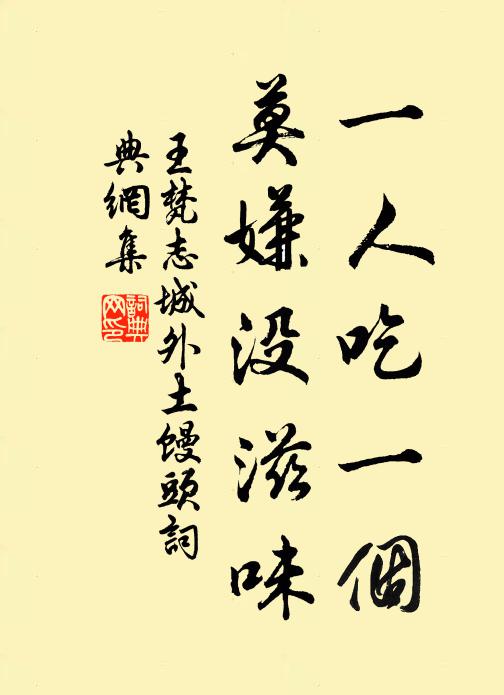 一人吃一個
莫嫌没滋味
王梵志城外土饅頭詞
典網集
詞典
网印